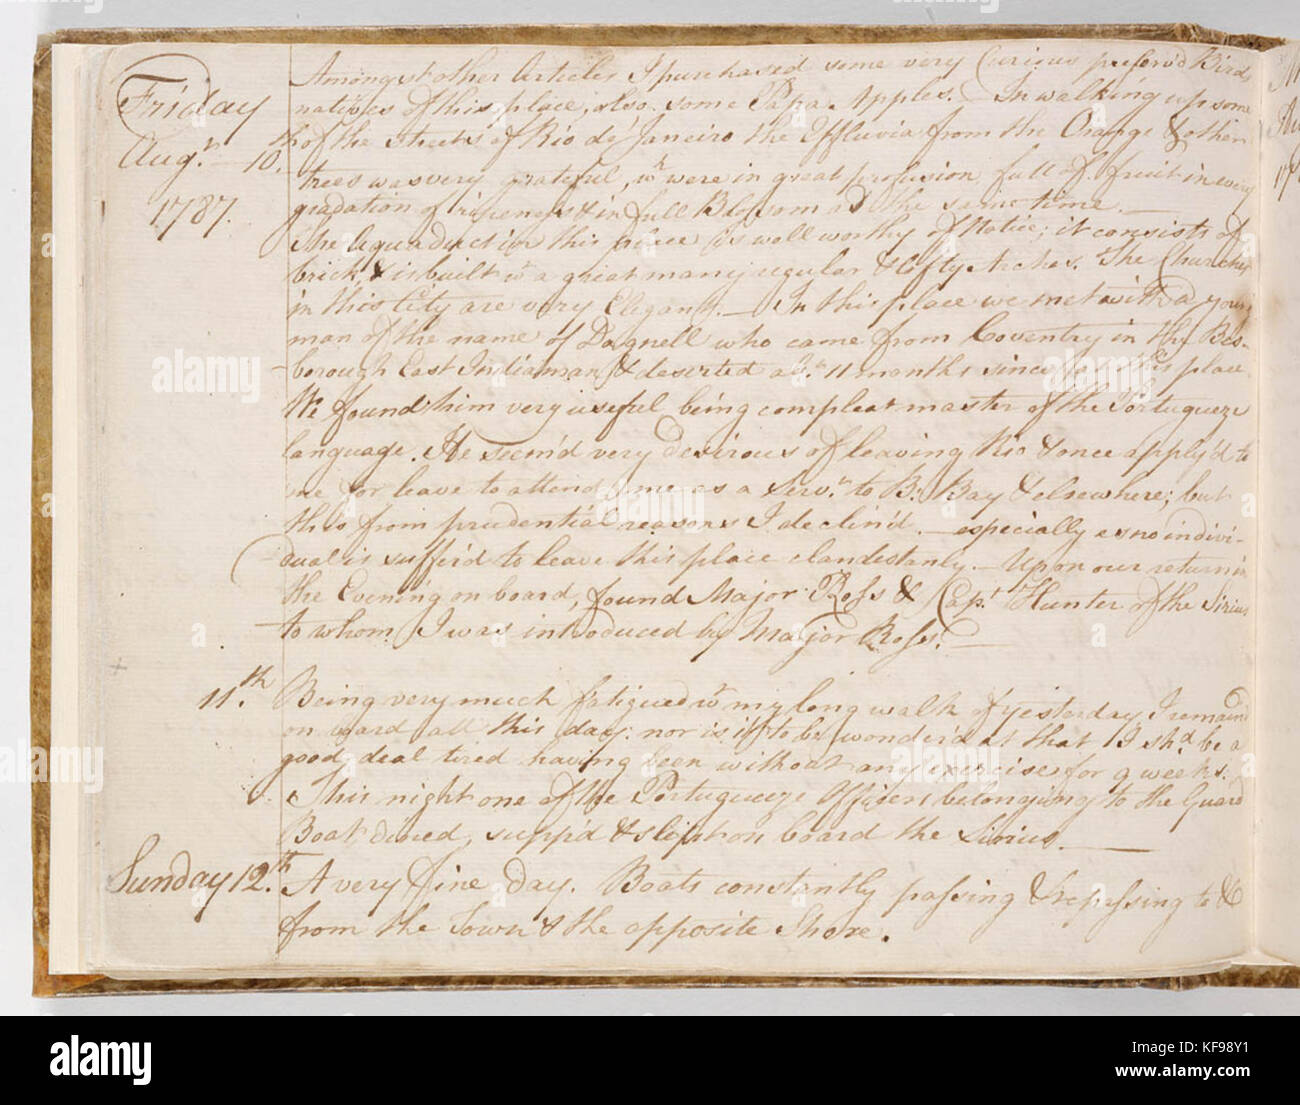 Friday
Augt. 10.th
1787.
Amongst other Articles I purchased some very Curious preserv'd Birds
natives of this place, also some Papa Apples. – In walking up some
of the Streets of Rio de Janeiro the Effluvia from the Orange & other
trees was very grateful, wh. were in great profusion full of fruit in every
gradation of ripeness & in full Blossom at the same time. –
The Aquaduct in this place is well worthy of Notice; it consists of
brick, & is built wt. a great many regular & lofty Arches. The Churches
in this City are very Elegant. – In this place we met with a young
man of the name of Dagnell who came from Coventry in the Bes-
-borough East Indiaman, & deserted abt. 11 months since at this place
We found him very useful being compleat master of the Portugueze
language. He seem'd very desirous of leaving Rio & once apply'd to
me for leave to attend me as a Servt. to B. Bay & elsewhere; but
this from prudential reasons I declin'd. – especially as no indivi-
-dual is suffer'd to leave this place clandestanly. – Upon our return in
the Evening on board, found Major Ross & Capt. Hunter of the Sirius
to whom I was introduced by Major Ross. –
11.th Being very much fatigued wt. my long walk of yesterday I remaind
on board all this day: nor is it to be wonder'd at that I shd. be a
good deal tired having been without any exercise for 9 weeks.
This night one of the Portugueze Officers belonging to the Guard
Boat dined, supp'd & slept on board the Sirius. –
Sunday 12.th A very fine Day. Boats constantly passing & repassing to &
from the Town & the opposite Shore.
alamy
alamy
alamy
alamy
alamy
Image ID: KF98Y1
www.alamy.com